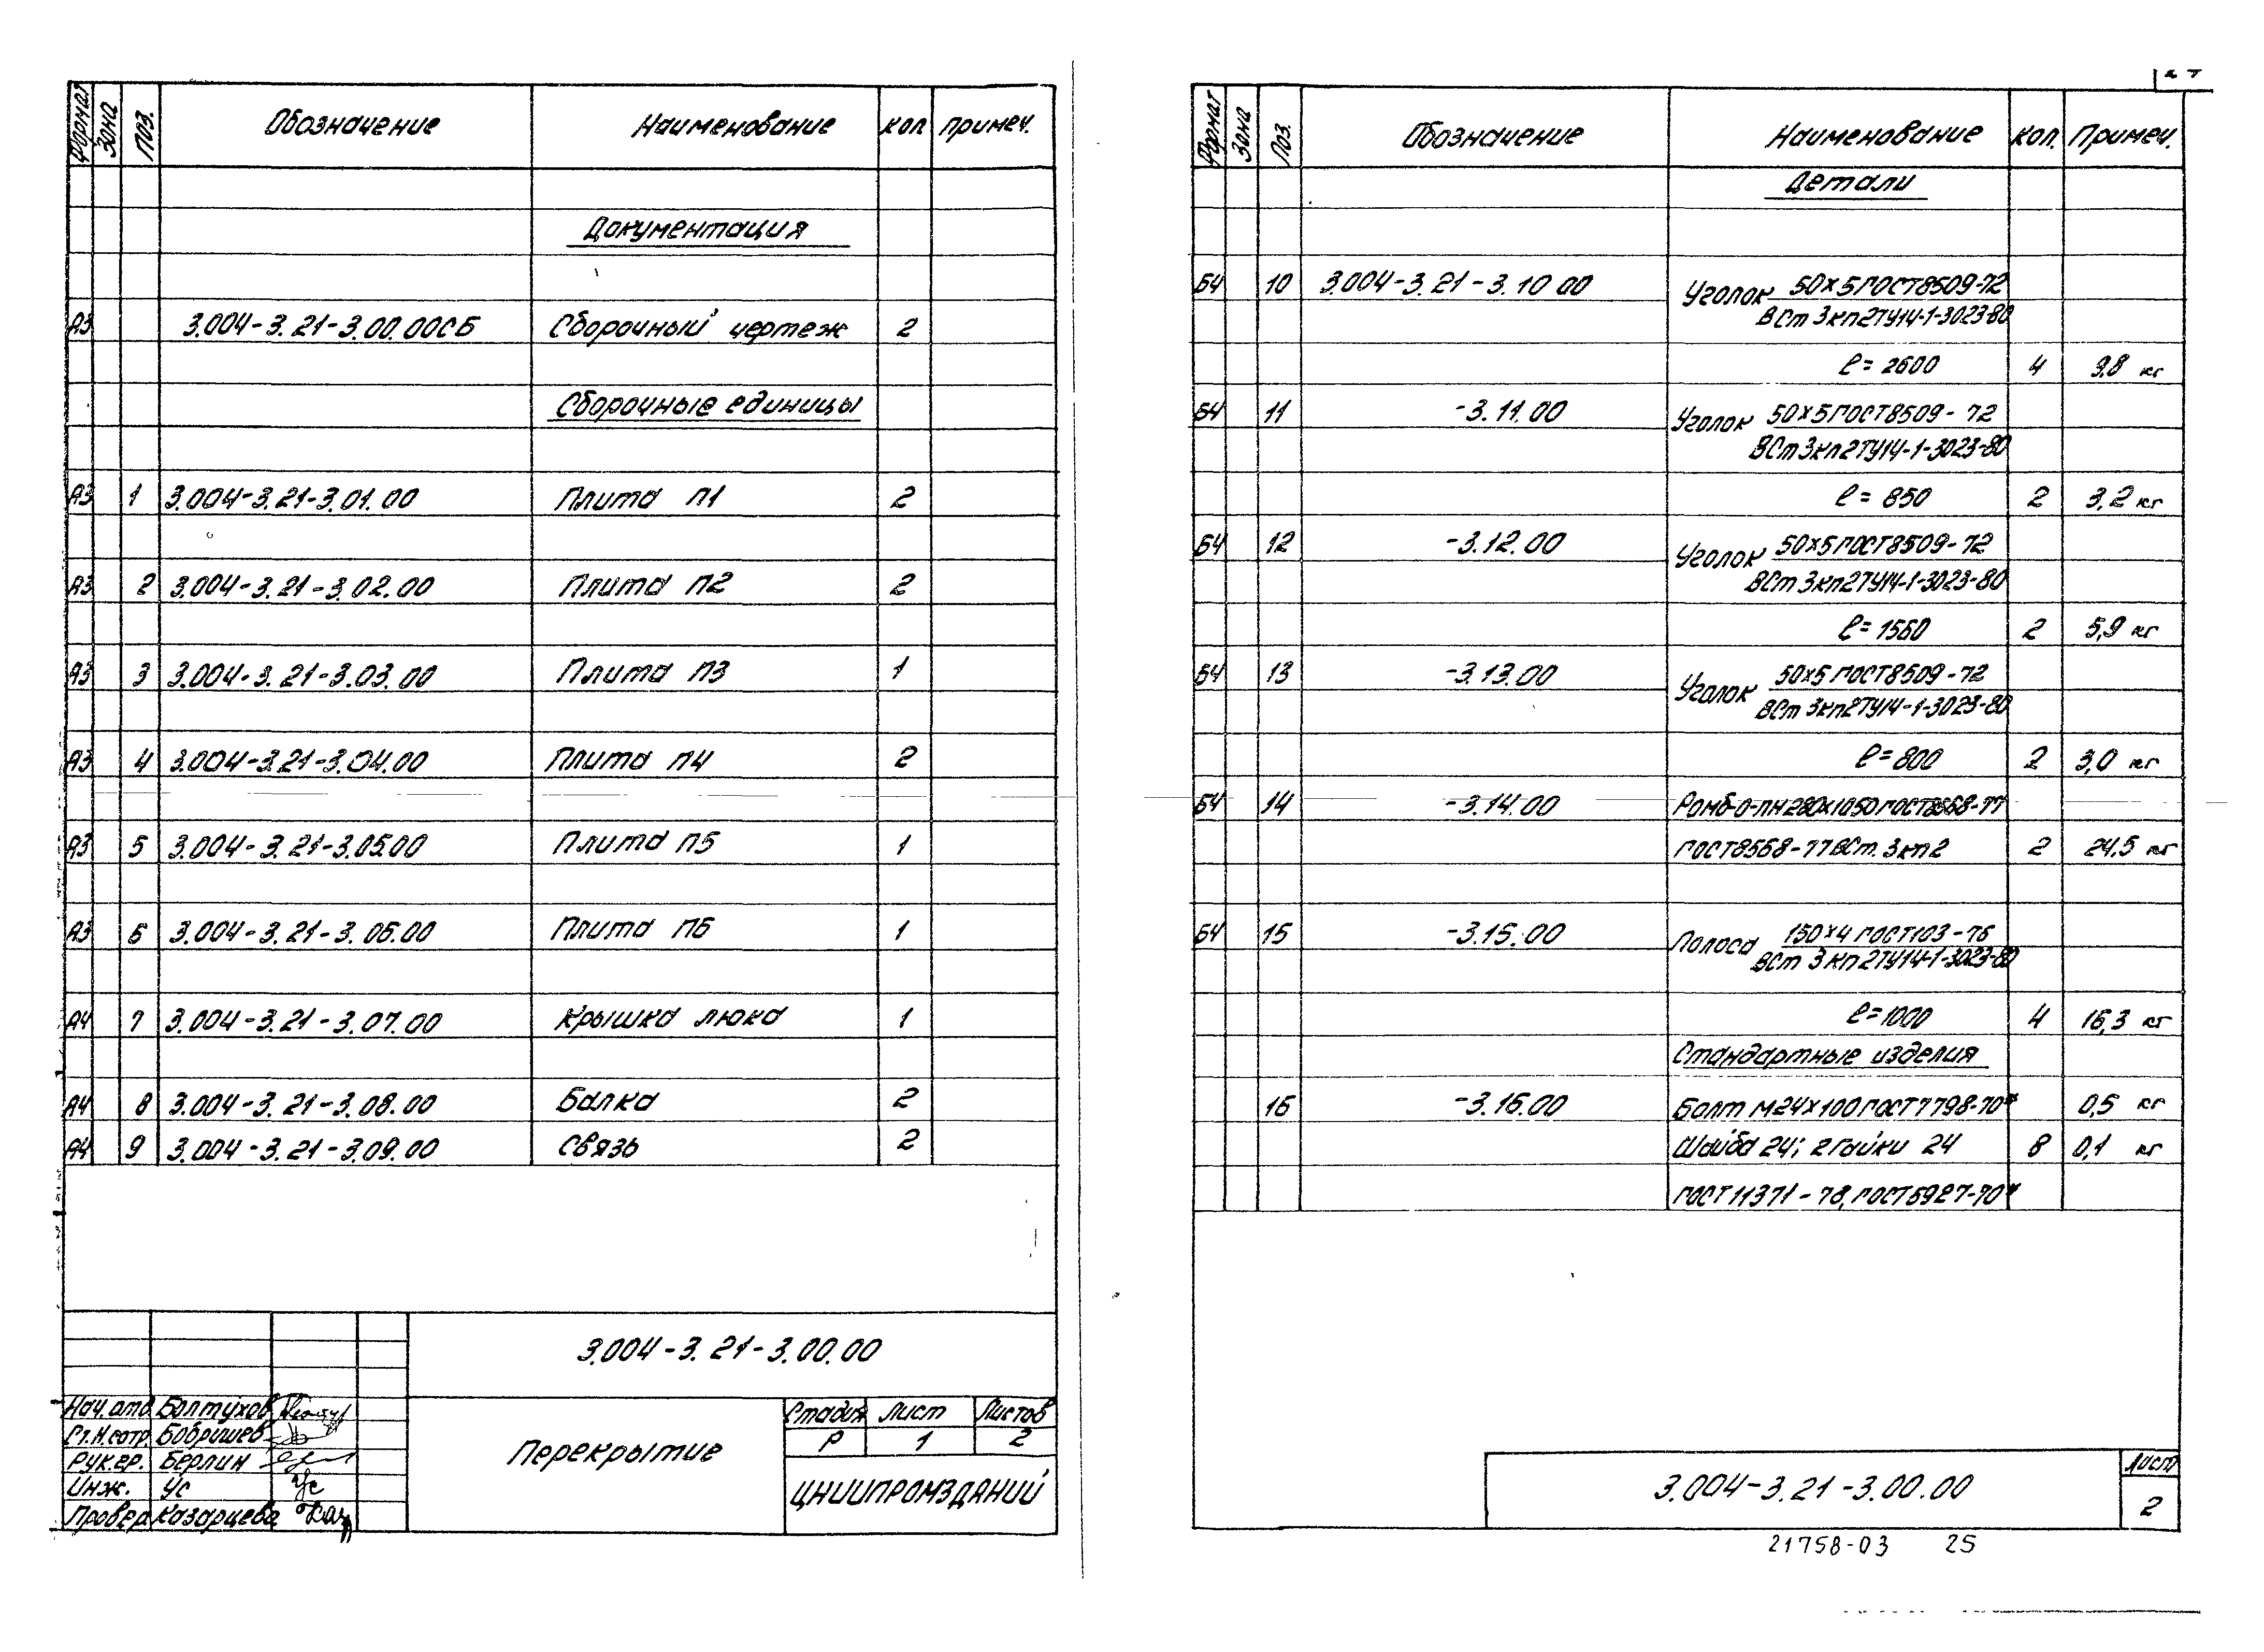 Формат Зона Поз. Обозначение Наименование кол примеч.
Документация
А3 3.004-3.21-3.00.00СБ Сборочный чертеж 2
Сборочные единицы
А3 1 3.004-3.21-3.01.00 Плита П1 2
А3 2 3.004-3.21-3.02.00 Плита П2 2
А3 3 3.004-3.21-3.03.00 Плита П3 1
А3 4 3.004-3.21-3.04.00 Плита П4 2
А3 5 3.004-3.21-3.05.00 Плита П5 1
А3 6 3.004-3.21-3.06.00 Плита П6 1
А4 7 3.004-3.21-3.07.00 Крышка люка 1
А4 8 3.004-3.21-3.08.00 Балка 2
А4 9 3.004-3.21-3.09.00 Связь 2
3.004-3.21-3.00.00
Нач.отд Болтухов
Ст.н.сотр. Бобришев
Рук.гр. Берлин
Инж. Ус
Провер Казарцева
Перекрытие
Стадия Лист Листов
Р 1 2
ЦНИИПРОМЗДАНИЙ
Формат Зона Поз. Обозначение Наименование кол. Примеч.
Детали
Б4 10 3.004-3.21-3.10 00 Уголок 50х5 ГОСТ8509-72
ВСт 3кп2ТУ14-1-3023-80
ℓ= 2600 4 9,8 кг
Б4 11 -3.11.00 Уголок 50х5 ГОСТ8509-72
ВСт 3кп2ТУ14-1-3023-80
ℓ= 850 2 3,2 кг
Б4 12 -3.12.00 Уголок 50х5 ГОСТ8509-72
ВСт 3кп2ТУ14-1-3023-80
ℓ= 1560 2 5,9 кг
Б4 13 -3.13.00 Уголок 50х5 ГОСТ8509-72
ВСт 3кп2ТУ14-1-3023-80
ℓ=800 2 3,0 кг
Б4 14 -3.14.00 Ромб-О-ПН280х1050ГОСТ8568-77
ГОСТ8568-77ВСт.3кп2 2 24,5 кг
Б4 15 -3.15.00 Полоса 150х4 ГОСТ103-76
ВСт 3кп2ТУ14-1-3023-80
ℓ=1000 4 16,3 кг
Стандартные изделия
16 -3.16.00 Болт М24х100 ГОСТ7798-70* 0,5 кг
Шайба 24; 2 гайки 24 8 0,1 кг
ГОСТ11371-78, ГОСТ5927-70*
3.004-3.21-3.00.00
Лист
2
21758-03 25